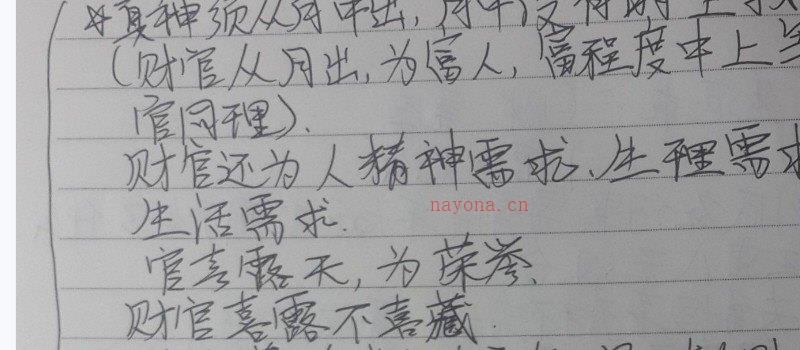 *真神须从月中出,月中没有
(财官从月出,为富人,富程度中上等
官同理).
财官还为人精神需求、生理需求
生活需求.
nayona.cn
官喜露天,为荣誉.
财官喜露不喜藏.